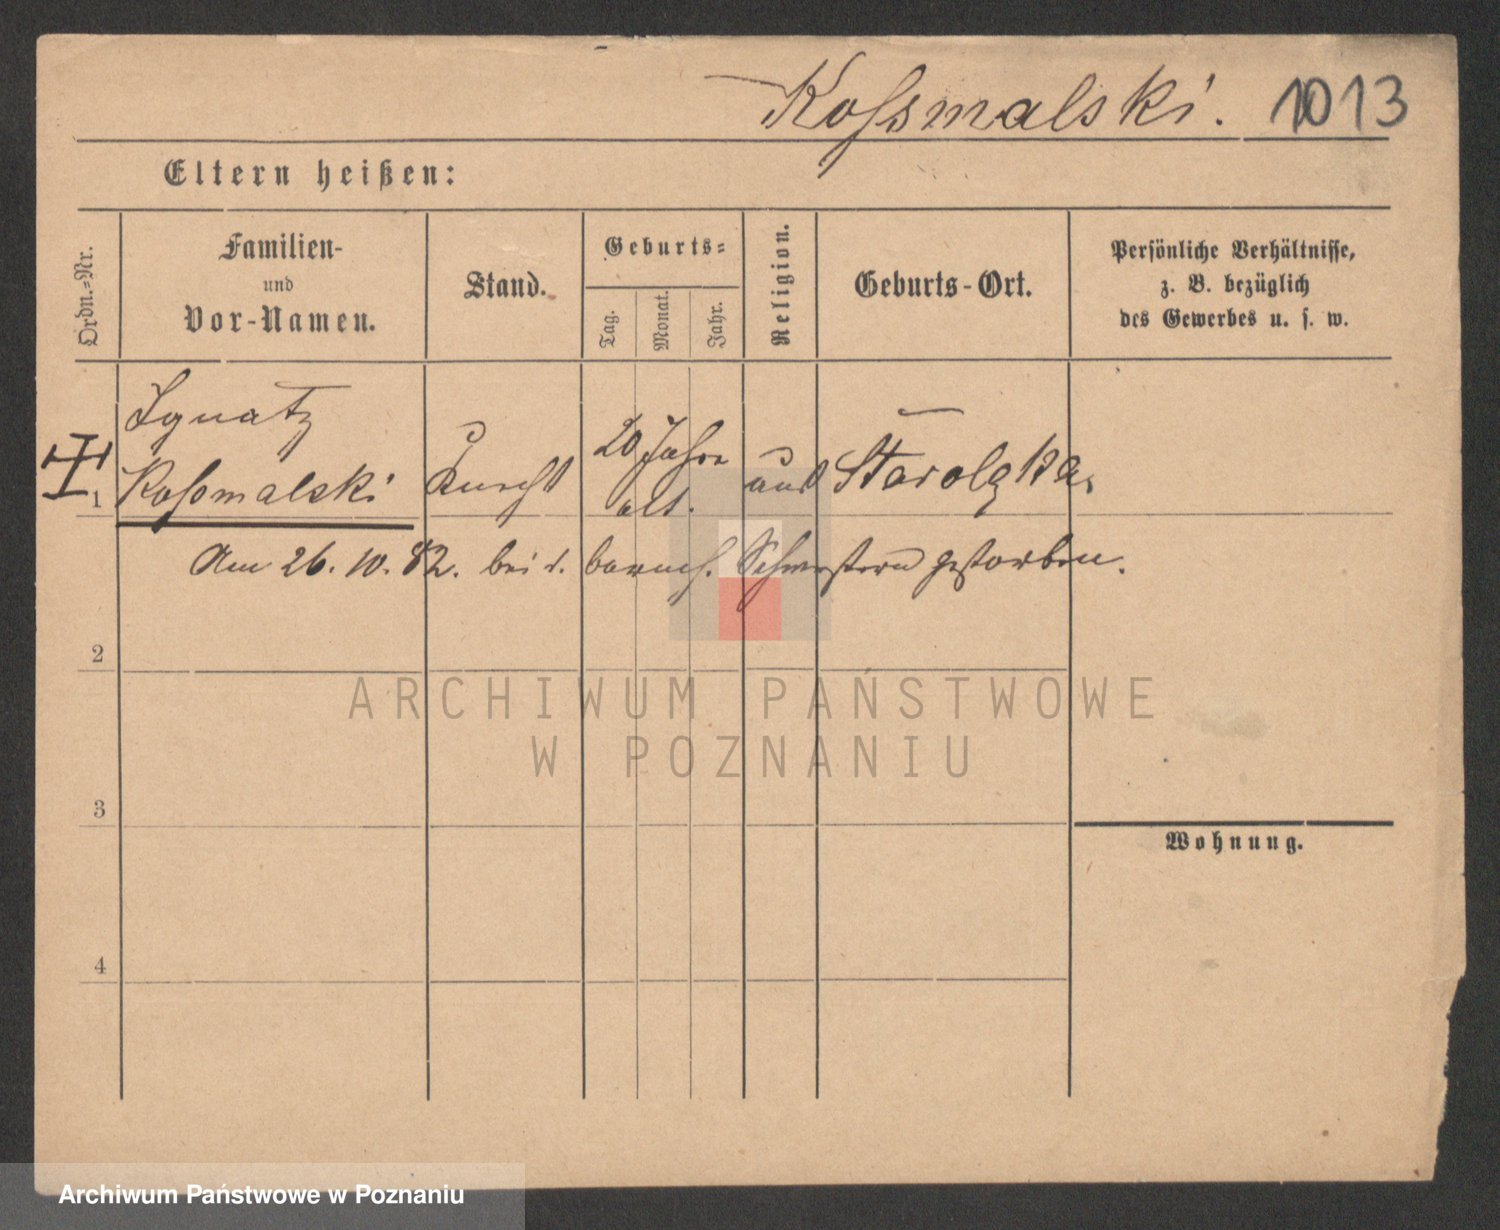 Koſsmalski. 1013
Eltern heißen:
Ordn.=Nr.
Familien-
und
Vor-Namen.
Stand.
Geburts=
Tag.
Monat.
Jahr.
Religion.
Geburts-Ort.
Persönliche Verhältnisse,
z. B. bezüglich
des Gewerbes u. s. w.
Ignatz
Koſsmalski
Knecht
20 Jahre
alt.
aus Starolęka.
1
Am 26. 10. 82. bei d. barmh. Schwestern gestorben.
2
3
4
Wohnung.
ARCHIWUM PAŃSTWOWE
W POZNANIU
Archiwum Państwowe w Poznaniu